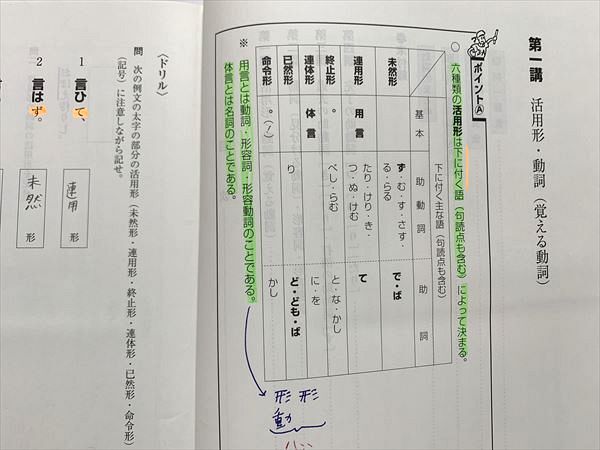 第一講　活用形・動詞（覚える動詞）
ポイントA
○　六種類の活用形は下に付く語（句読点も含む）によって決まる。
下に付く主な語（句読点も含む）
基本　助動詞　助詞
未然形　ず・む・す・さす・る・らる　で・ば
連用形　用言　たり・けり・き・つ・ぬ・けむ　て
終止形　。　べし・らむ　と・な・かし
連体形　体言　に・を
已然形　り　ど・ども・ば
命令形　。（！）　かし
※　用言とは動詞・形容詞・形容動詞のことである。
体言とは名詞のことである。
形　形動
〈ドリル〉
問　次の例文の太字の部分の活用形（未然形・連用形・終止形・連体形・已然形・命令形）
（記号）に注意しながら記せ。
1　言ひて、
連用　形
2　言はず。
未然　形